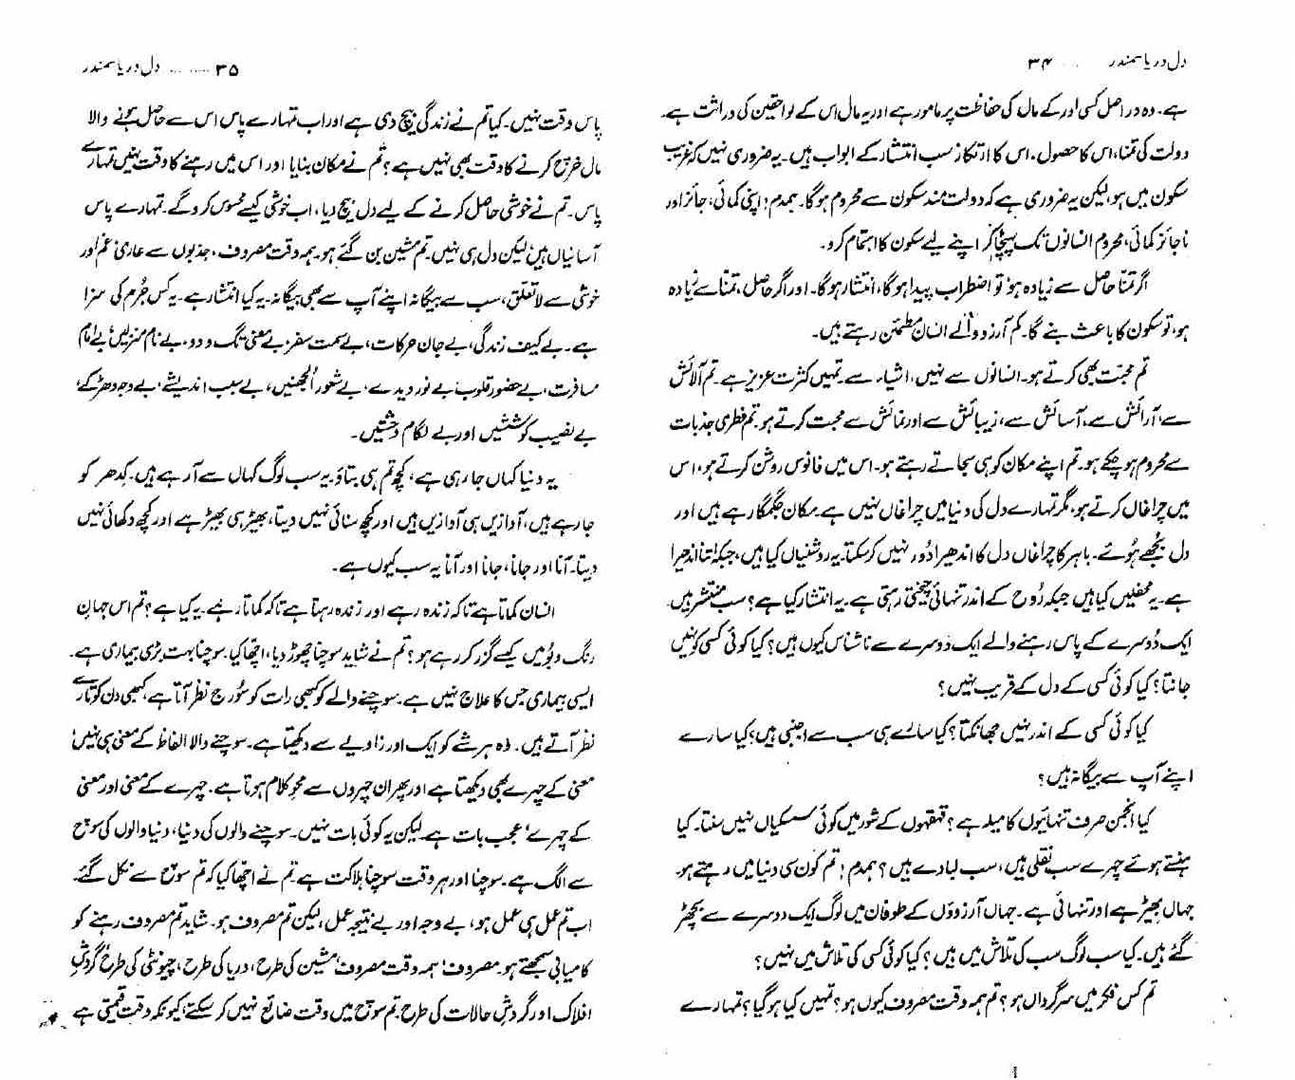 دل دریا سمندر ۳۴
ہے۔ وہ دراصل کسی اور کے مال کی حفاظت پر مامور ہے اور یہ مال اس کے لواحقین کی وراثت ہے۔
دولت کی تمنا، اس کا حصول، اس کا ارتکاز سب انتشار کے ابواب ہیں۔ یہ ضروری نہیں کہ غریب
سکون میں ہو، لیکن یہ ضروری ہے کہ دولت مند سکون سے محروم ہوگا۔ ہمدم! اپنی کمائی، جائز اور
ناجائز کمائی، محروم انسانوں تک پہنچا کر اپنے لیے سکون کا اہتمام کرو۔
اگر تمنا حاصل سے زیادہ ہو، تو اضطراب پیدا ہوگا، انتشار ہوگا۔ اور اگر حاصل، تمنا سے زیادہ
ہو، تو سکون کا باعث بنے گا۔ کم آرزو والے انسان مطمئن رہتے ہیں۔
تم محبت بھی کرتے ہو۔ انسانوں سے نہیں، اشیاء سے۔ تمہیں کثرت عزیز ہے۔ تم آلائش
سے، آرائش سے، آسائش سے، زیبائش سے اور نمائش سے محبت کرتے ہو۔ تم فطری جذبات
سے محروم ہو چکے ہو۔ تم اپنے مکان کو ہی سجاتے رہتے ہو۔ اس میں فانوس روشن کرتے ہو، اس
میں چراغاں کرتے ہو، مگر تمہارے دل کی دنیا میں چراغاں نہیں ہے مکان جگمگا رہے ہیں اور
دل بجھے ہوئے۔ باہر کا چراغاں دل کا اندھیرا دُور نہیں کر سکتا۔ یہ روشنیاں کیا ہیں، جبکہ اتنا اندھیرا
ہے۔ یہ محفلیں کیا ہیں جبکہ رُوح کے اندر تنہائی چیختی رہتی ہے۔ یہ انتشار کیا ہے؟ سب منتشر ہیں۔
ایک دُوسرے کے پاس رہنے والے ایک دُوسرے سے ناشناس کیوں ہیں؟ کیا کوئی کسی کو نہیں
جانتا؟ کیا کوئی کسی کے دل کے قریب نہیں؟
کیا کوئی کسی کے اندر نہیں جھانکتا؟ کیا سارے ہی سب سے اجنبی ہیں؟ کیا سارے
اپنے آپ سے بیگانہ ہیں؟
کیا انجمن صرف تنہائیوں کا میلہ ہے؟ قہقہوں کے شور میں کوئی سسکیاں نہیں سنتا۔ کیا
ہنستے ہوئے چہرے سب نقلی ہیں، سب لبادے ہیں؟ ہمدم! تم کون سی دنیا میں رہتے ہو۔
جہاں بھیڑ ہے اور تنہائی ہے۔ جہاں آرزوؤں کے طوفان میں لوگ ایک دوسرے سے بچھڑ
گئے ہیں۔ کیا سب لوگ سب کی تلاش میں ہیں؟ کیا کوئی کسی کی تلاش میں نہیں؟
تم کس فکر میں سرگرداں ہو؟ تم ہمہ وقت مصروف کیوں ہو؟ تمہیں کیا ہو گیا؟ تمہارے
۳۵ ........ دل دریا سمندر
پاس وقت نہیں۔ کیا تم نے زندگی بیچ دی ہے اور اب تمہارے پاس اس سے حاصل ہونے والا
مال خرچ کرنے کا وقت بھی نہیں ہے؟ تم نے مکان بنایا اور اس میں رہنے کا وقت نہیں تمہارے
پاس۔ تم نے خوشی حاصل کرنے کے لیے دل بیچ دیا، اب خوشی کیسے محسوس کرو گے۔ تمہارے پاس
آسانیاں ہیں لیکن دل ہی نہیں۔ تم مشین بن گئے ہو۔ ہمہ وقت مصروف، جذبوں سے عاری، غم اور
خوشی سے لاتعلق، سب سے بیگانہ اپنے آپ سے بھی بیگانہ۔ یہ کیا انتشار ہے۔ یہ کس جُرم کی سزا
ہے۔ بے کیف زندگی، بے جان حرکات، بے سمت سفر، بے معنی تگ و دو، بے نام منزلیں، بے امام
مسافرت، بے حضور قلوب، بے نور دیدے، بے شعور اُلجھنیں، بے سبب اندیشے، بے وجہ دھڑکے،
بے نصیب کوششیں اور بے لگام وحشتیں۔
یہ دنیا کہاں جا رہی ہے، کچھ تم ہی بتاؤ یہ سب لوگ کہاں سے آ رہے ہیں۔ کدھر کو
جا رہے ہیں، آوازیں ہی آوازیں ہیں اور کچھ سنائی نہیں دیتا، بھیڑ ہی بھیڑ ہے اور کچھ دکھائی نہیں
دیتا۔ آنا اور جانا، جانا اور آنا یہ سب کیوں ہے۔
انسان کماتا ہے تاکہ زندہ رہے اور زندہ رہتا ہے تاکہ کماتا رہے۔ یہ کیا ہے؟ تم اس جہانِ
رنگ و بُو میں کیسے گزر کر رہے ہو؟ تم نے شاید سوچنا چھوڑ دیا، اچھا کیا۔ سوچنا بہت بڑی بیماری ہے۔
ایسی بیماری جس کا علاج نہیں ہے۔ سوچنے والے کو کبھی رات کو سُورج نظر آتا ہے، کبھی دن کو تارے
نظر آتے ہیں۔ وہ ہر شے کو ایک اور زاویے سے دیکھتا ہے۔ سوچنے والا الفاظ کے معنی ہی نہیں،
معنی کے چہرے بھی دیکھتا ہے اور پھر ان چہروں سے محوِ کلام ہوتا ہے۔ چہرے کے معنی اور معنی
کے چہرے، عجب بات ہے۔ لیکن یہ کوئی بات نہیں۔ سوچنے والوں کی دنیا، دنیا والوں کی سوچ
سے الگ ہے۔ سوچنا اور ہر وقت سوچنا ہلاکت ہے۔ تم نے اچھا کیا کہ تم سوچ سے نکل گئے۔
اب تم عمل ہی عمل ہو، بے وجہ اور بے نتیجہ عمل، لیکن تم مصروف ہو۔ شاید تم مصروف رہنے کو
کامیابی سمجھتے ہو۔ مصروف، ہمہ وقت مصروف، مشین کی طرح، دریا کی طرح، چیونٹی کی طرح، گردشِ
افلاک اور گردشِ حالات کی طرح۔ تم سوچ میں وقت ضائع نہیں کر سکتے، کیونکہ وقت قیمتی ہے